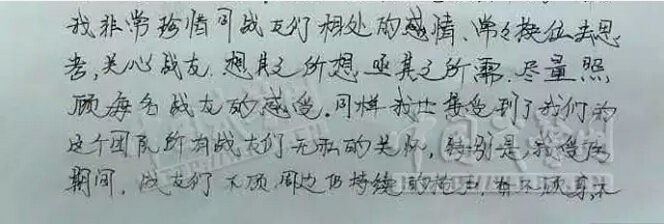 我非常珍惜同战友们相处的感情、常々换位去思
考,关心战友,想其之所想,亟其之所需,尽量照
顾每名战友的感受。同样我也接受到了我们的
这个团队所有战友们无私的关怀,特别是我受伤
期间,战友们不顾周边仍持续的枪声,奋不顾身,不